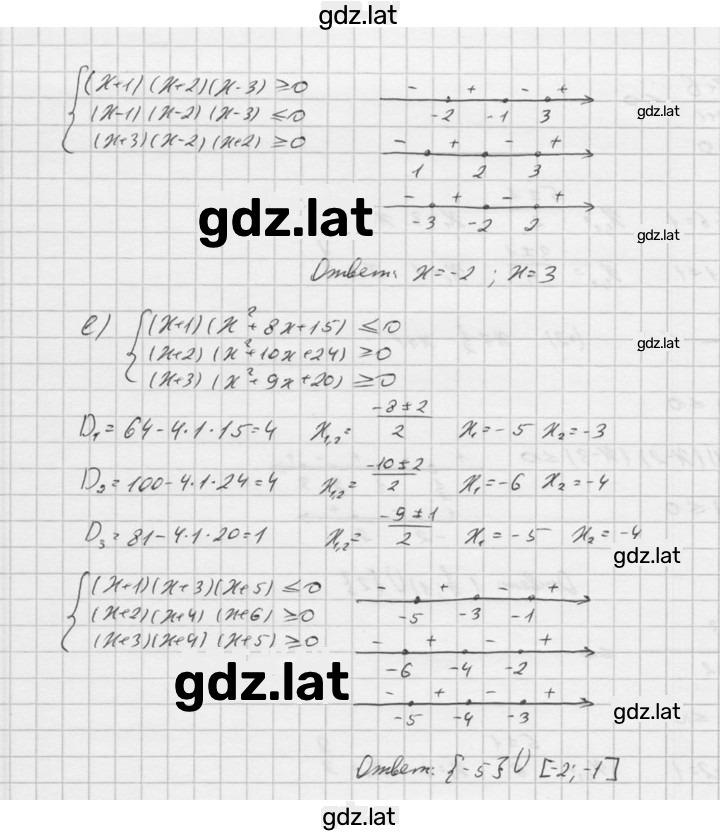 gdz.lat
(x+1)(x+2)(x-3) ≥0
(x-1)(x-2)(x-3) ≤0
(x+3)(x-2)(x+2) ≥0
- + - +
-2 -1 3
gdz.lat
- + - +
1 2 3
- + - +
-3 -2 2
gdz.lat
gdz.lat
Ответ: x=-2 ; x=3
е) (x+1)(x²+8x+15) ≤0
(x+2)(x²+10x+24) ≥0
(x+3)(x²+9x+20) ≥0
gdz.lat
D₁=64-4·1·15=4 x₁,₂= (-8±2)/2 x₁=-5 x₂=-3
D₂=100-4·1·24=4 x₁,₂= (-10±2)/2 x₁=-6 x₂=-4
D₃=81-4·1·20=1 x₁,₂= (-9±1)/2 x₁=-5 x₂=-4
gdz.lat
(x+1)(x+3)(x+5) ≤0
(x+2)(x+4)(x+6) ≥0
(x+3)(x+4)(x+5) ≥0
- + - +
-5 -3 -1
- + - +
-6 -4 -2
- + - +
-5 -4 -3
gdz.lat
gdz.lat
Ответ: {-5} U [-2; -1]
gdz.lat